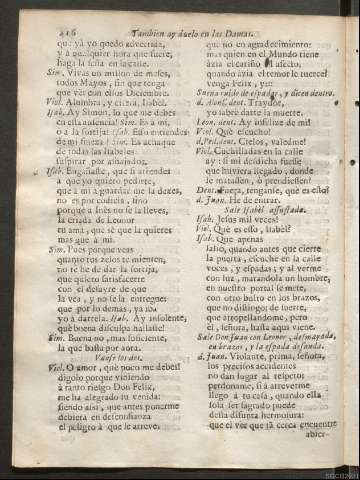 216 Tambien ay duelo en las Damas.
que yà yo quedo advertida,
y à qualquier hora que fuere,
haga la seña en la calle.
Sim. Vivas un millon de meses,
todos Mayos, sin que tenga
que vèr con ellos Diciembre.
Viol. Alumbra, y cierra, Isabèl.
Isab. Ay Simon, lo que me debes
en esta ausencia! Sim. Es à mì,
ò à la sortija? Isab. Esso entiendes
de mi fineza? Sim. Es achaque
de todas las Isabeles
suspirar por ensaladas
Isab. Engañaste, que si atiendes
à que yo quiero pedirte,
que à mì à guardar me la dexes,
no es por codicia, sino
porque à Inès no se la lleves,
la criada de Leonor
tu ama, que sè que la quieres
mas que à mì.
Sim. Pues porque veas
quanto tus zelos te mienten,
no te he de dar la sortija,
que quiero satisfacerte
con el desayre de que
la vea, y no se la entregues
que por lo demàs, ya iba
yo à dartela. Isab. Ay insolente,
què buena disculpa hallaste!
Sim. Buena no, mas suficiente,
la que basta por aora.
Vanse los dos.
Viol. O amor, què poco me debes!
digolo porque viniendo
à tanto riesgo Don Felix,
me ha alegrado tu venida:
siendo assi, que antes ponerme
debiera en desconfianza
el peligro à que se atreve,
que no en agradecimiento:
mas quien en el Mundo tiene
àzia el cariño el afecto,
quando àzia el temor le tuerce?
venga Felix, y:::
Suena ruido de espadas, y dicen dentro.
d. Alons. dent. Traydor,
yo sabrè darte la muerte.
Leon. dent. Ay infelice de mì!
Viol. Què escucho!
d. Ped. dent. Cielos, valedme!
Viol. Cuchilladas en la calle
ay: si mi desdicha fuesse
que huviera llegado, donde
le matassen, ò prendiessen?
Dent. Fuera, tenganse, què es esto?
d. Juan. He de entrar.
Sale Isabèl assustada.
Isab. Jesus mil veces!
Viol. Què es esso, Isabèl?
Isab. Que apenas
saliò, quando antes que cierre
la puerta, escuche en la calle
voces, y espadas; y al verme
con luz, matandola un hombre,
en nuestro portal se mete,
con otro bulto en los brazos,
que no distingo de suerte,
que atropellandome, pero
èl, señora, hasta aqui viene.
Sale Don Juan con Leonor, desmayada,
en brazos, y la espada desnuda.
d. Juan. Violante, prima, señora,
los precisos accidentes
no dan lugar al respeto:
perdoname, si à atreverme
llego à tu casa, quando ella
sola ser sagrado puede
desta difunta hermosura:
que el vèr que tù cerca encuentre
abier-